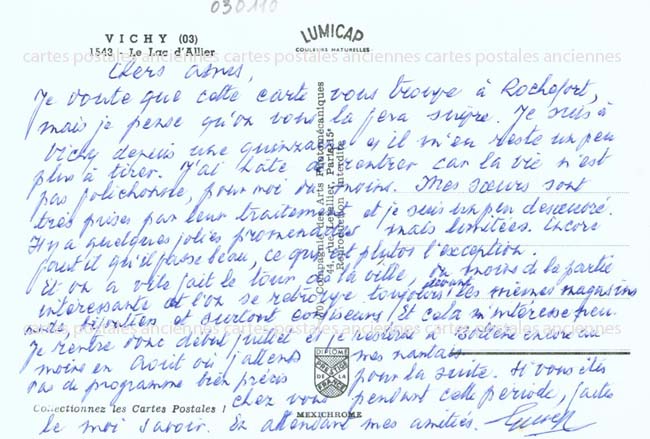 030110
VICHY (03)
1543 - Le Lac d'Allier
LUMICAP
COULEURS NATURELLES
cartes postales anciennes cartes postales anciennes cartes postales anciennes
Chers amis,
Je doute que cette carte vous trouve à Rochefort,
mais je pense qu'on vous la fera suivre. Je suis à
Vichy depuis une quinzaine et il m'en reste un peu
plus à tirer. J'ai hâte de rentrer car la vie n'est
pas folichonne, pour moi du moins. Mes sœurs sont
très prises par leur traitement et je suis un peu désœuvré.
Il y a quelques jolies promenades mais limitées. Encore
faut il qu'il fasse beau, ce qui est plutôt l'exception.
Et on a vite fait le tour de la ville, du moins de la partie
intéressante et l'on se retrouve toujours devant les mêmes magasins
bijoutiers et surtout confiseurs. Et cela m'intéresse peu.
cartes postales anciennes cartes postales anciennes cartes postales anciennes
Je rentre donc début juillet et je resterai à encore au
moins en Août où j'attends mes nantais.
Pas de programme bien précis pour la suite. Si vous êtes
chez vous pendant cette période, faites
le moi savoir. En attendant mes amitiés.
Compagnie des Arts Photomécaniques
44, rue Letellier, Paris-15e
Reproduction Interdite
DIPLOME
PRESTIGE
DE LA
FRANCE
MEXICHROME
Collectionnez les Cartes Postales !